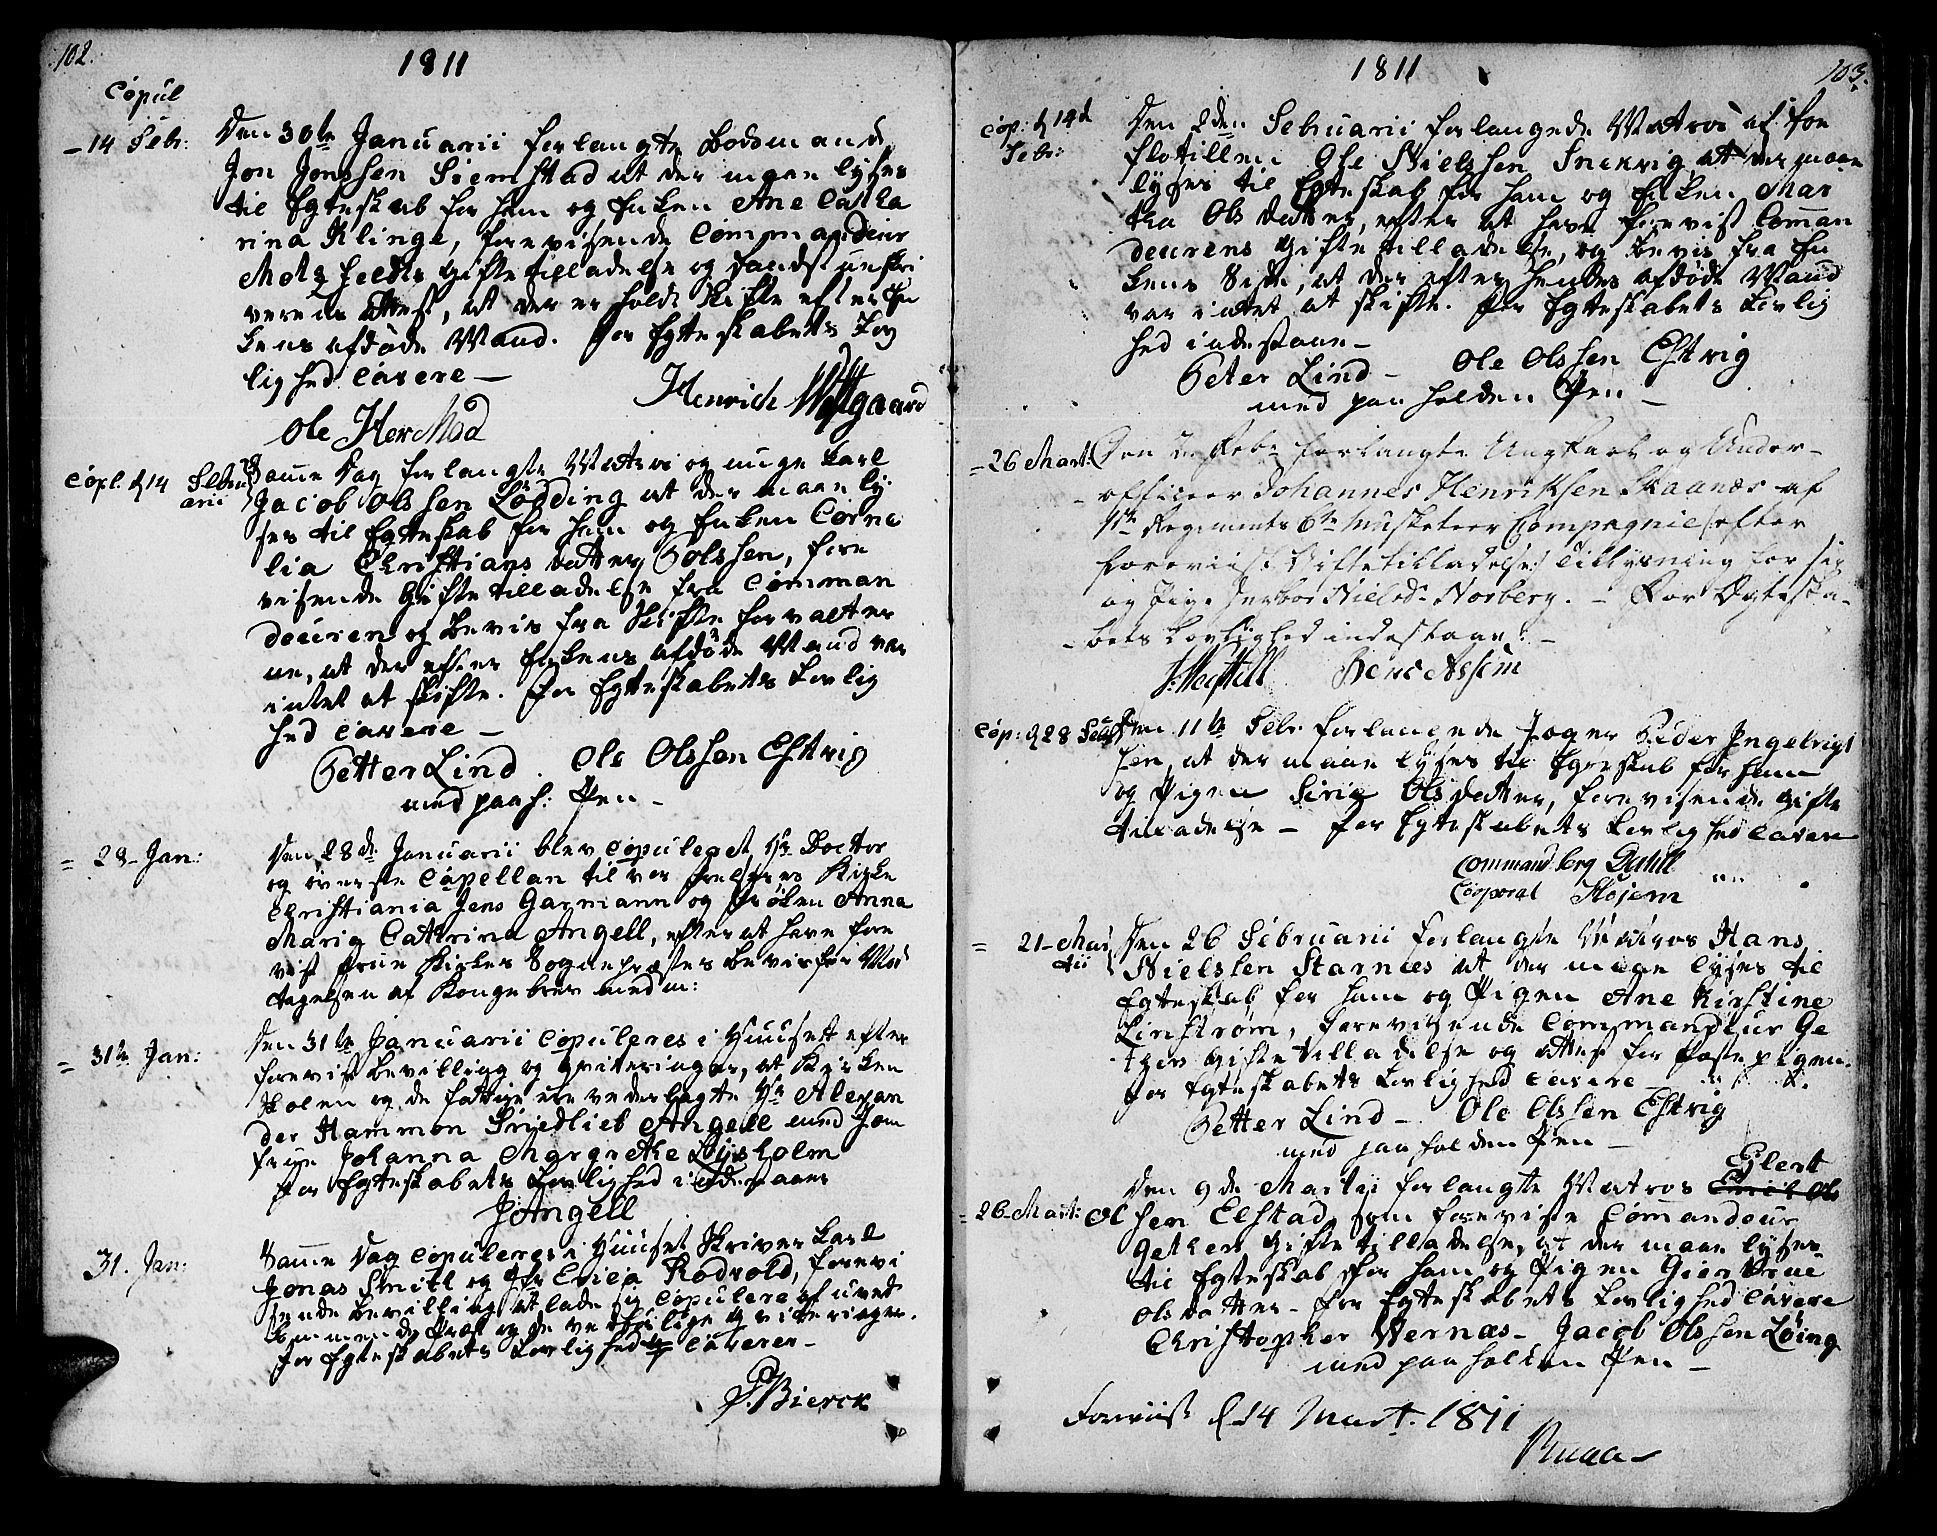 102.
1811
Copul
14 Febr:
Den 30te Januarii forlangte Bodsmand
Jon Jonssen Siemstad at der maae lyses
til Egteskab for ham og Enken Ane Catha
rina Klinge, forevisende Commandeur
Giftetilladelse og
Attest, at der er holdt Skifte efter En
kens afdøde Mand. For Egteskabets Lov
lighed cavere
Ole
Henrich
Copl. d 14 Febru
arii
Samme Dag forlangte Matros og unge Karl
Jacob Olssen Lødding at der maae ly
ses til Egteskab for ham og Enken Corne
lia Christians datter Polssen, fore
visende Giftetilladelse fra Comman
deuren og Bevis fra Skifte forvalter
ne, at der efter Enkens afdøde Mand var
intet at skifte. For Egteskabets Lovlig
hed cavere
Petter Lind. Ole Olssen Estvig
med paah: Pen
28 Jan:
Den 28de Januarii blev copuleret Hr Doctor
og øverste Capellan til vor Frelseres Kirke
Christiania Jens Garmann og Frøken Anna
Maria Cathrina Angell, efter at have fore
vist Frue Kirkes Sognepræstes Bevis for Mod
tagelsen af Kongebrev med m:
31te Jan:
Den 31te Januarii copuleres i Huuset efter
forevist Bevilling og Qviteringer, at Kirken
Skolen og de fattige ere vederlagte Hr Alexan
der Hammon Friedlieb Angell med Jom
frue Johanna Margrethe Lysholm
For Egteskabets Lovlighed indestaaer
JAngell
31. Jan:
Samme Dag copuleres i Huuset Skriver Karl
Jonas Smitt og Jfr Erica Rodvold, forevi
sende Bevilling at lade sig copulere af uved
kommende Præst og de Qviteringer.
For Egteskabets Lovlighed caverer
P. Bierck
103.
1811
Cop: d 14d
Febr:
Den 2den Februarii forlangede Matros af Roe
flotillen Ole Nielssen at der maae
lyses til Egteskab for ham og Enken Mar
tha Olsdatter, efter at have forevist Comman
deurens Giftetilladelse, og Bevis fra En
kens Side, at der efter hendes afdøde Mand
var intet at skifte. For Egteskabets Lovlig
hed indestaae
Peter Lind Ole Olssen Estvig
med paaholden Pen
26 Mart:
Den Febr forlangte Ungkarl og Under
officeer Johannes Henriksen Skaanes af
Regiments 6te Musketeer Compagnie (efter
foreviist Giftetilladelse) Tillysning for sig
og Pige Nielsd. Norberg. For Ægteska
bets Lovlighed indestaae:
Cop: d 28 Febr
Den 11te Febr. forlangede Jæger Peder Ingebrigt
sen, at der maae lyses til Egteskab for ham
og Pigen Siri Olsdatter, forevisende Gifte
tilladelse For Egteskabets Lovlighed cavere
Command Berg Dahl
Corporal Stojem
21 Mar
tii
Den 26 Februarii forlangte Matros Hans
Nielslen Starnæs at der maae lyses til
Egteskab for ham og Pigen Ane Kirstine
Linstrøm, forevisende Commandeur Ge
ther Giftetilladelse og Attest for Fæstepigen.
For Egteskabets Lovlighed cavere
Petter Lind Ole Olssen Estvig
med paaholden Pen
26 Mart:
Ejlert
Den 9de Martii forlangte Matros Erich Ols
Ol sen Elstad, som foreviste Comandeur
Gethers Giftetilladelse, at der maae lyses
til Egteskab for ham og Pigen Giertrue
Olsdatter For Egteskabets Lovlighed cavere
Christopher Wernæs Jacob Olssen Løing
med paaholden Pen
Foreviist d 14 Mart. 1811